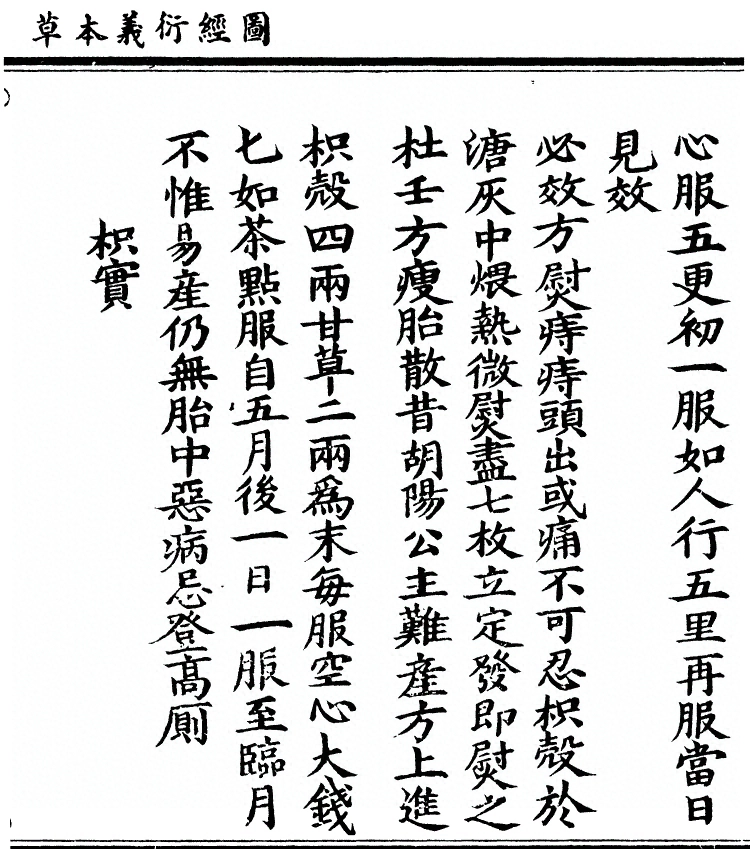 圖經衍義本草
心服五更初一服如人行五里再服當日
見效
必效方熨痔痔頭出或痛不可忍枳殼於
溏灰中煨熱微熨盡七枚立定發即熨之
杜壬方瘦胎散昔胡陽公主難產方上進
枳殼四兩甘草二兩爲末每服空心大錢
匕如茶點服自五月後一日一服至臨月
不惟易産仍無胎中惡病忌登高厠
枳實